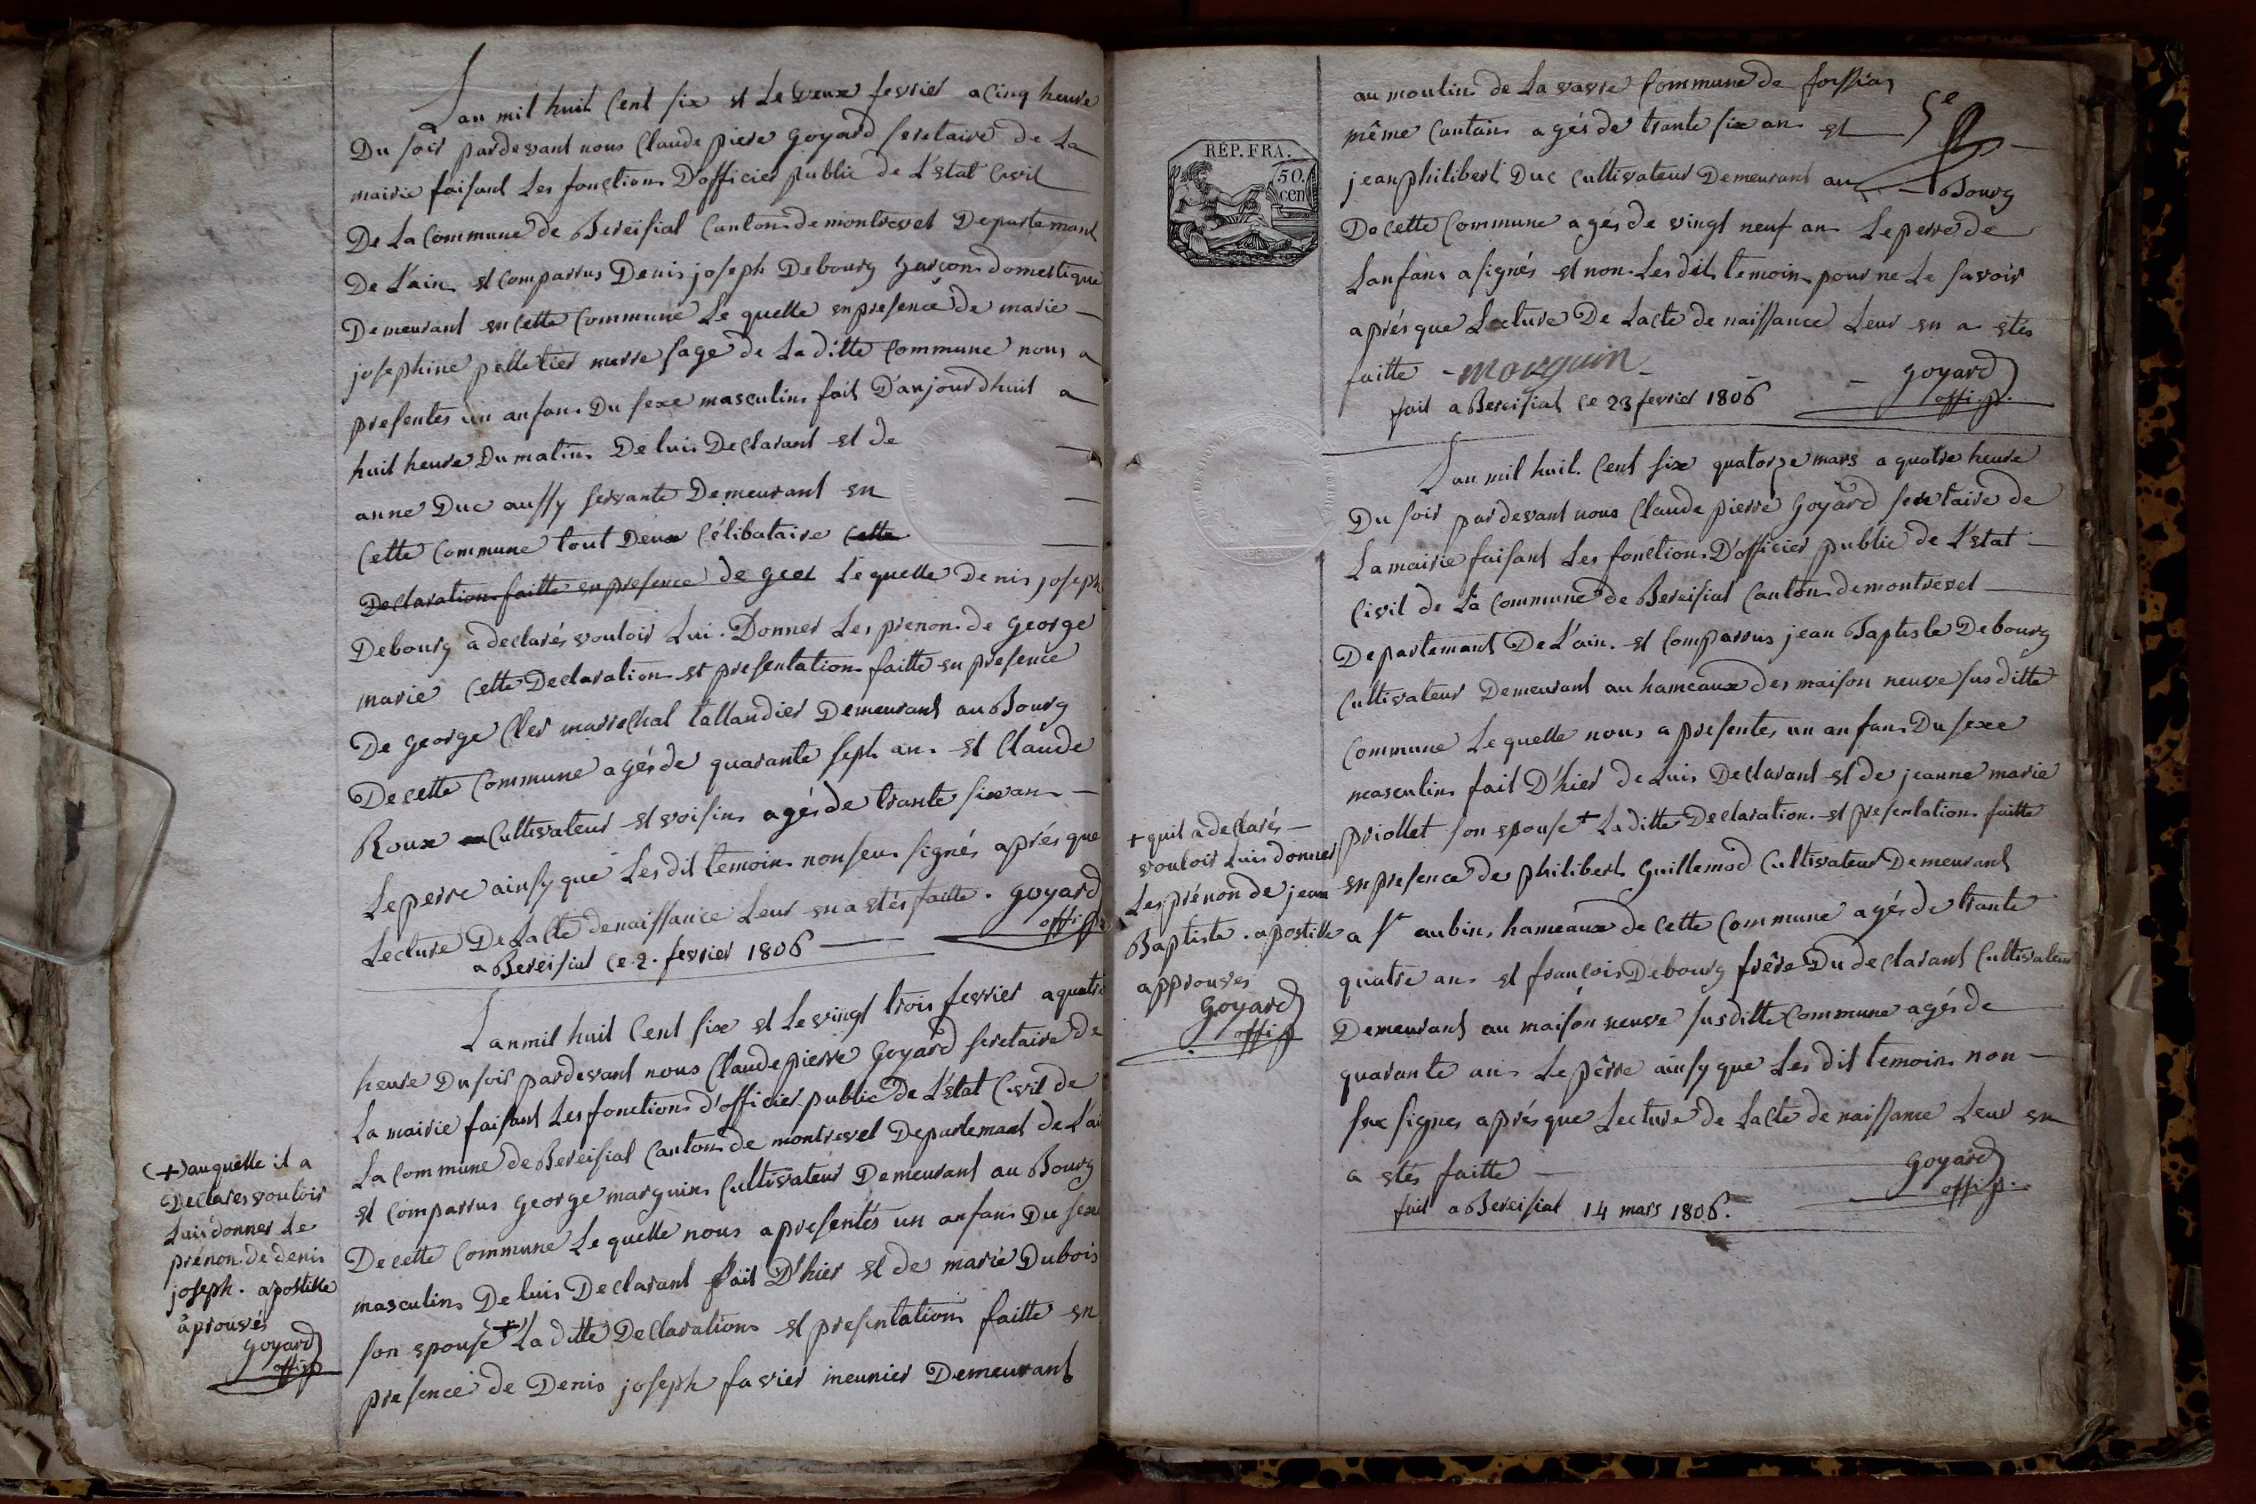 Lan mil huit Cent six et Le deux fevrier a Cinq heure
Du soir pardevant nous Claude piere Goyard seretaire de La
mairie faisant Les fonctions D'officier public de L'etat Civil
De La Commune de Bereisiat Canton de montrevet Departemant
De L'ain et Comparrus Denis joseph Debourg garçon domestique
Demeurant en Cette Commune Le quelle en presence de marie
josephine pelletier merre sage de La ditte Commune nous a
presentés un anfans Du sexe masculin fait D'aujourdhuit a
huit heure Du matin De luis Declarant et de
anne Duc aussy servante Demeurant en
Cette Commune tout Deux Célibataire Cette
Declaration faitte en presence de geor Le quelle Denis joseph
Debourg a declarés vouloir Lui Donner Les prenon de George
marie Cette Declaration et presentation faitte en presence
De George Cler marrechal tallandier Demeurant au Bourg
De cette Commune agés de quarante seph an et Claude
Roux Cultivateur et voisin agés de trante six an
Le perre ainsy que Les dit temoin non seu signés aprés que
Lecture De Lacte de naissance Leur en a etés faitte . Goyard
offi. p.
a Bereisiat Ce 2. fevrier 1806
Lan mil huit Cent six et Le vingt trois fevrier a quatre
heure Du soir pardevant nous Claude pierre Goyard seretaire de
La mairie faisant Les fonction d'officier public De L'etat Civil de
La Commune de Bereisiat Canton de montrevet Departemant de L'ai
et Comparrus George marguin Cultivateur Demeurant au Bourg
De cette Commune Le quelle nous a presentés un anfans Du sexe
masculin De luis Declarant fait D'hier et de marie Dubois
son epouse + La ditte Declaration et presentation faitte en
presence de Denis joseph favier meunier Demeurant
(+) au quelle il a
Declares vouloir
Luis donner Le
prénon de denis
joseph . apostille
aprouvés
Goyard
offi. p
au moulin de La vavre Commune de foissia
même Canton agés de trante six an et
5e
jean philibert Duc Cultivateur Demeurant au Bourg
De Cette Commune agés de vingt neuf an Le perre de
Lanfans a signés et non Les dit temoin pour ne Le savoir
aprés que Lecture De Lacte de naissance Leur en a etés
faitte - marguin
Goyard
offi. p.
fait a Bereisiat Ce 23 fevrier 1806
RÉP. FRA.
50.
cen
Lan mil huit Cent six quatorze mars a quatre heure
Du soir pardevant nous Claude pierre Goyard seretaire de
La mairie faisant Les fonction D'officier public de L'etat
Civil de La Commune de Bereisiat Canton de montrevet
Departemant De L'ain . et Comparrus jean Baptiste Debourg
Cultivateur Demeurant au hameaux des maison neuve sus ditte
Commune Le quelle nous a presentes un anfans Du sexe
masculin fait D'hier de Luis Declarant et de jeanne marie
priollet son epouse + La ditte Declaration et presentation faitte
en presence de philibert Guillemod Cultivateur Demeurant
a St aubin, hameaux de Cette Commune agés de trante
quatre an et françois Debourg frêre Du declarant Cultivateur
Demeurant au maison neuve sus ditte Commune agés de
quarante an Le pêrre ainsy que Les dit temoin non
seu signes aprés que Lecture de Lacte de naissance Leur en
a etés faitte
Goyard
offi. p.
fait a Bereisiat 14 mars 1806.
+ quil a declarés
vouloir Luis donner
Les prénon de jean
Baptiste . apostille
approuves
Goyard
offi. p